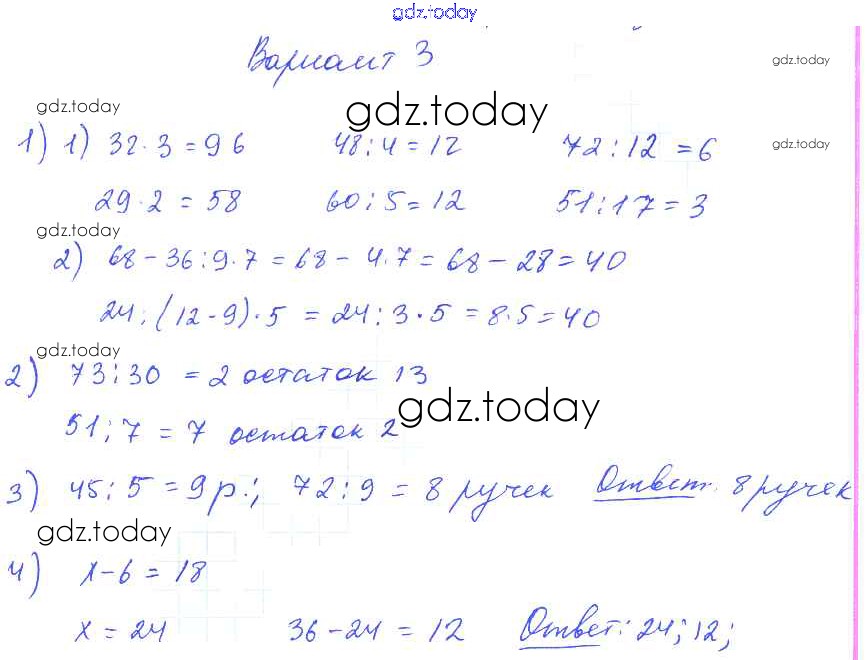 gdz.today
Вариант 3
gdz.today
gdz.today
gdz.today
1) 1) 32·3=96 48:4=12 72:12=6
gdz.today
29·2=58 60:5=12 51:17=3
gdz.today
2) 68-36:9·7=68-4·7=68-28=40
24:(12-9)·5=24:3·5=8·5=40
gdz.today
2) 73:30=2 остаток 13
gdz.today
51:7=7 остаток 2
3) 45:5=9р.; 72:9=8 ручек Ответ: 8 ручек
gdz.today
4) x-6=18
x=24 36-24=12 Ответ: 24; 12;